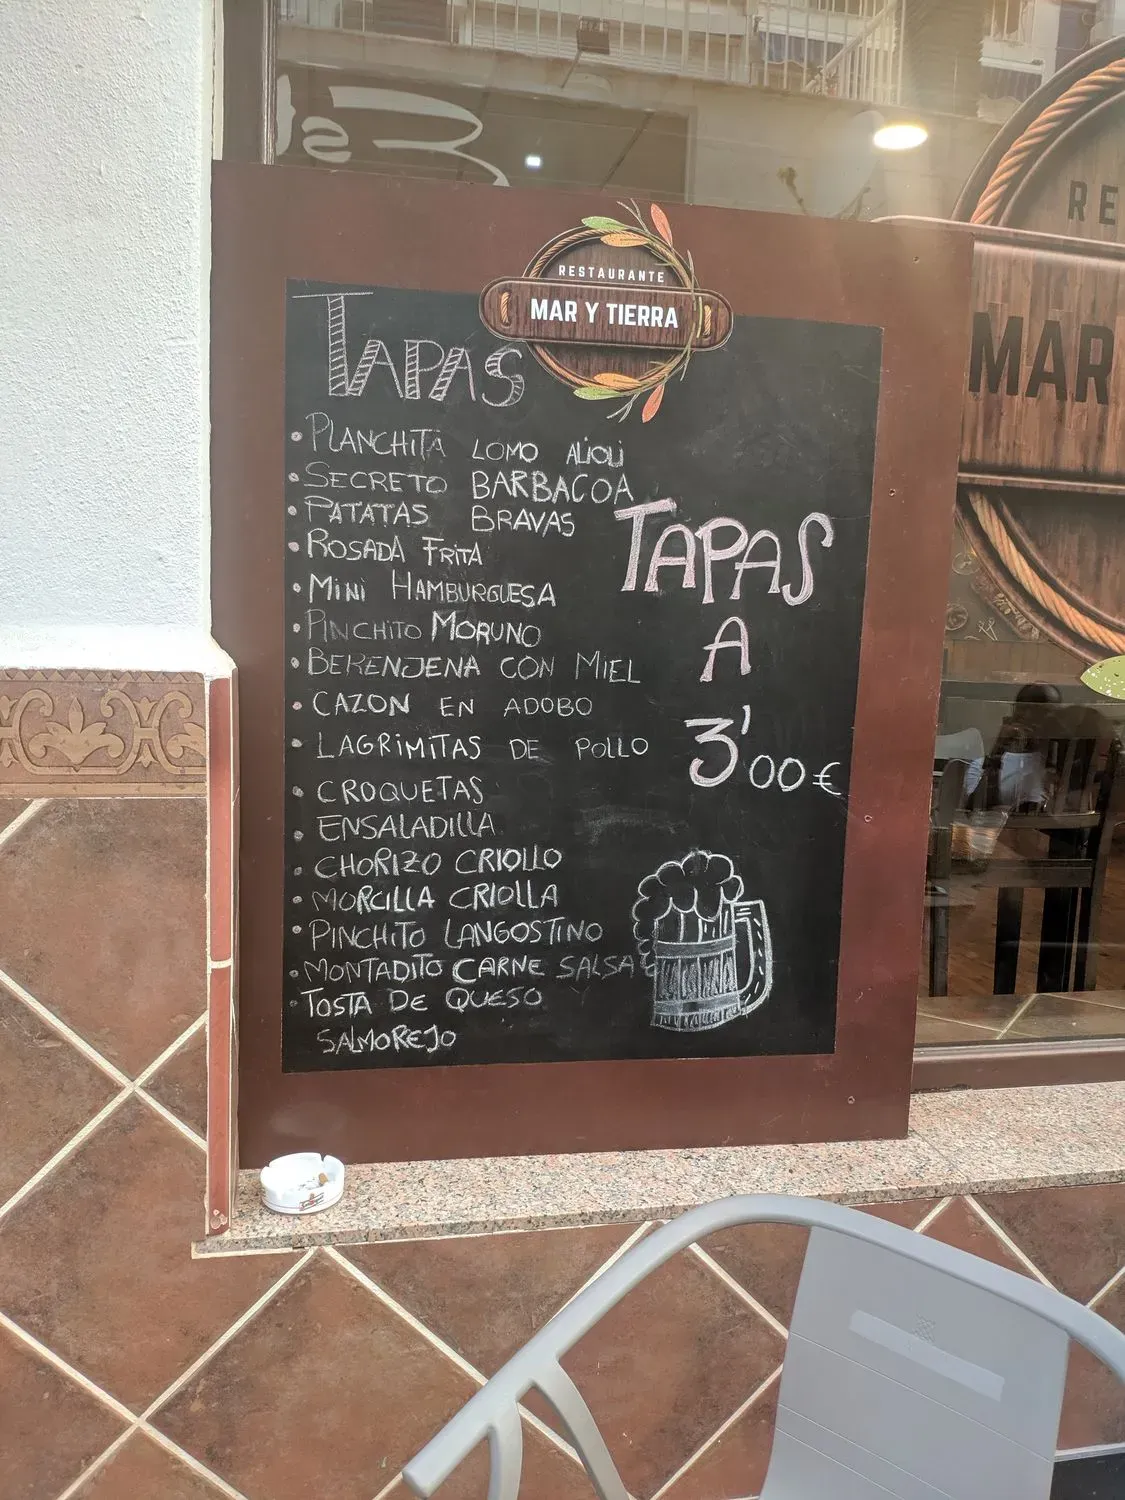 RESTAURANTE
MAR Y TIERRA
TAPAS
• PLANCHITA LOMO ALIOLI
• SECRETO BARBACOA
• PATATAS BRAVAS
• ROSADA FRITA
• MINI HAMBURGUESA
• PINCHITO MORUNO
• BERENJENA CON MIEL
• CAZON EN ADOBO
• LAGRIMITAS DE POLLO
• CROQUETAS
• ENSALADILLA
• CHORIZO CRIOLLO
• MORCILLA CRIOLLA
• PINCHITO LANGOSTINO
• MONTADITO CARNE SALSA
• TOSTA DE QUESO
SALMOREJO
TAPAS
A
3'00€
RE
MAR